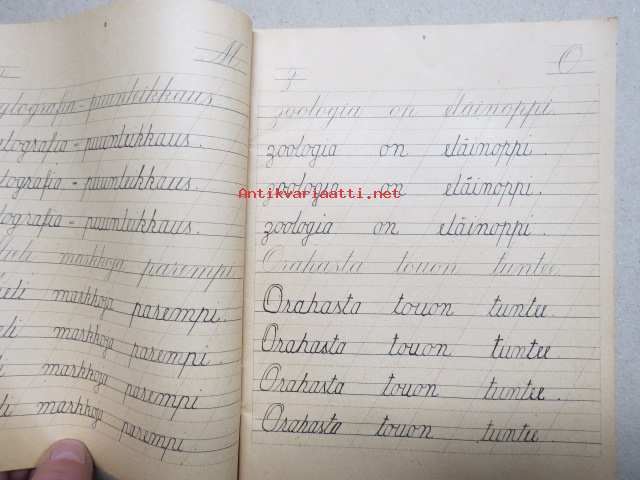 M
ylografia - puunleikkaus
lografia - puunleikkaus.
lografia - puunleikkaus.
lografia - puunleikkaus.
ieli markkoja parempi.
ieli markkoja parempi.
ieli markkoja parempi.
ieli markkoja parempi.
li markkoja parempi.
O
zoologia on eläinoppi.
zoologia on eläinoppi.
zoologia on eläinoppi.
zoologia on eläinoppi.
Orahasta touon tuntee.
Orahasta touon tuntee.
Orahasta touon tuntee
Orahasta touon tuntee.
Orahasta touon tuntee.
Antikvariaatti.net